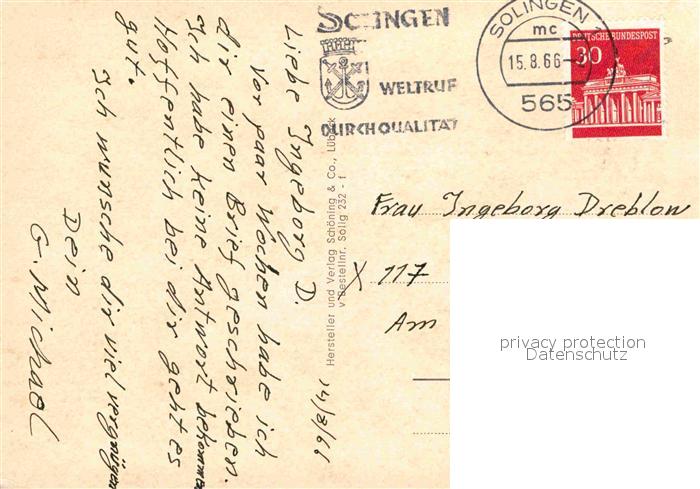 SOLINGEN
WELTRUF
DURCH QUALITÄT
SOLINGEN
mc
15.8.66
565
DEUTSCHE BUNDESPOST
30
14/8/66
Liebe Ingeborg D.
Vor paar Wochen habe ich
dir einen Brief geschrieben.
Ich habe keine Antwort bekommen
Hoffentlich bei dir geht es
gut.
Ich wunsche dir viel vergnügen
Dein
G. Michael
Hersteller und Verlag Schöning & Co., Lübeck
Bestellnr. Solig 232 - f
Frau Ingeborg Dreblow
X 117
Am
privacy protection
Datenschutz